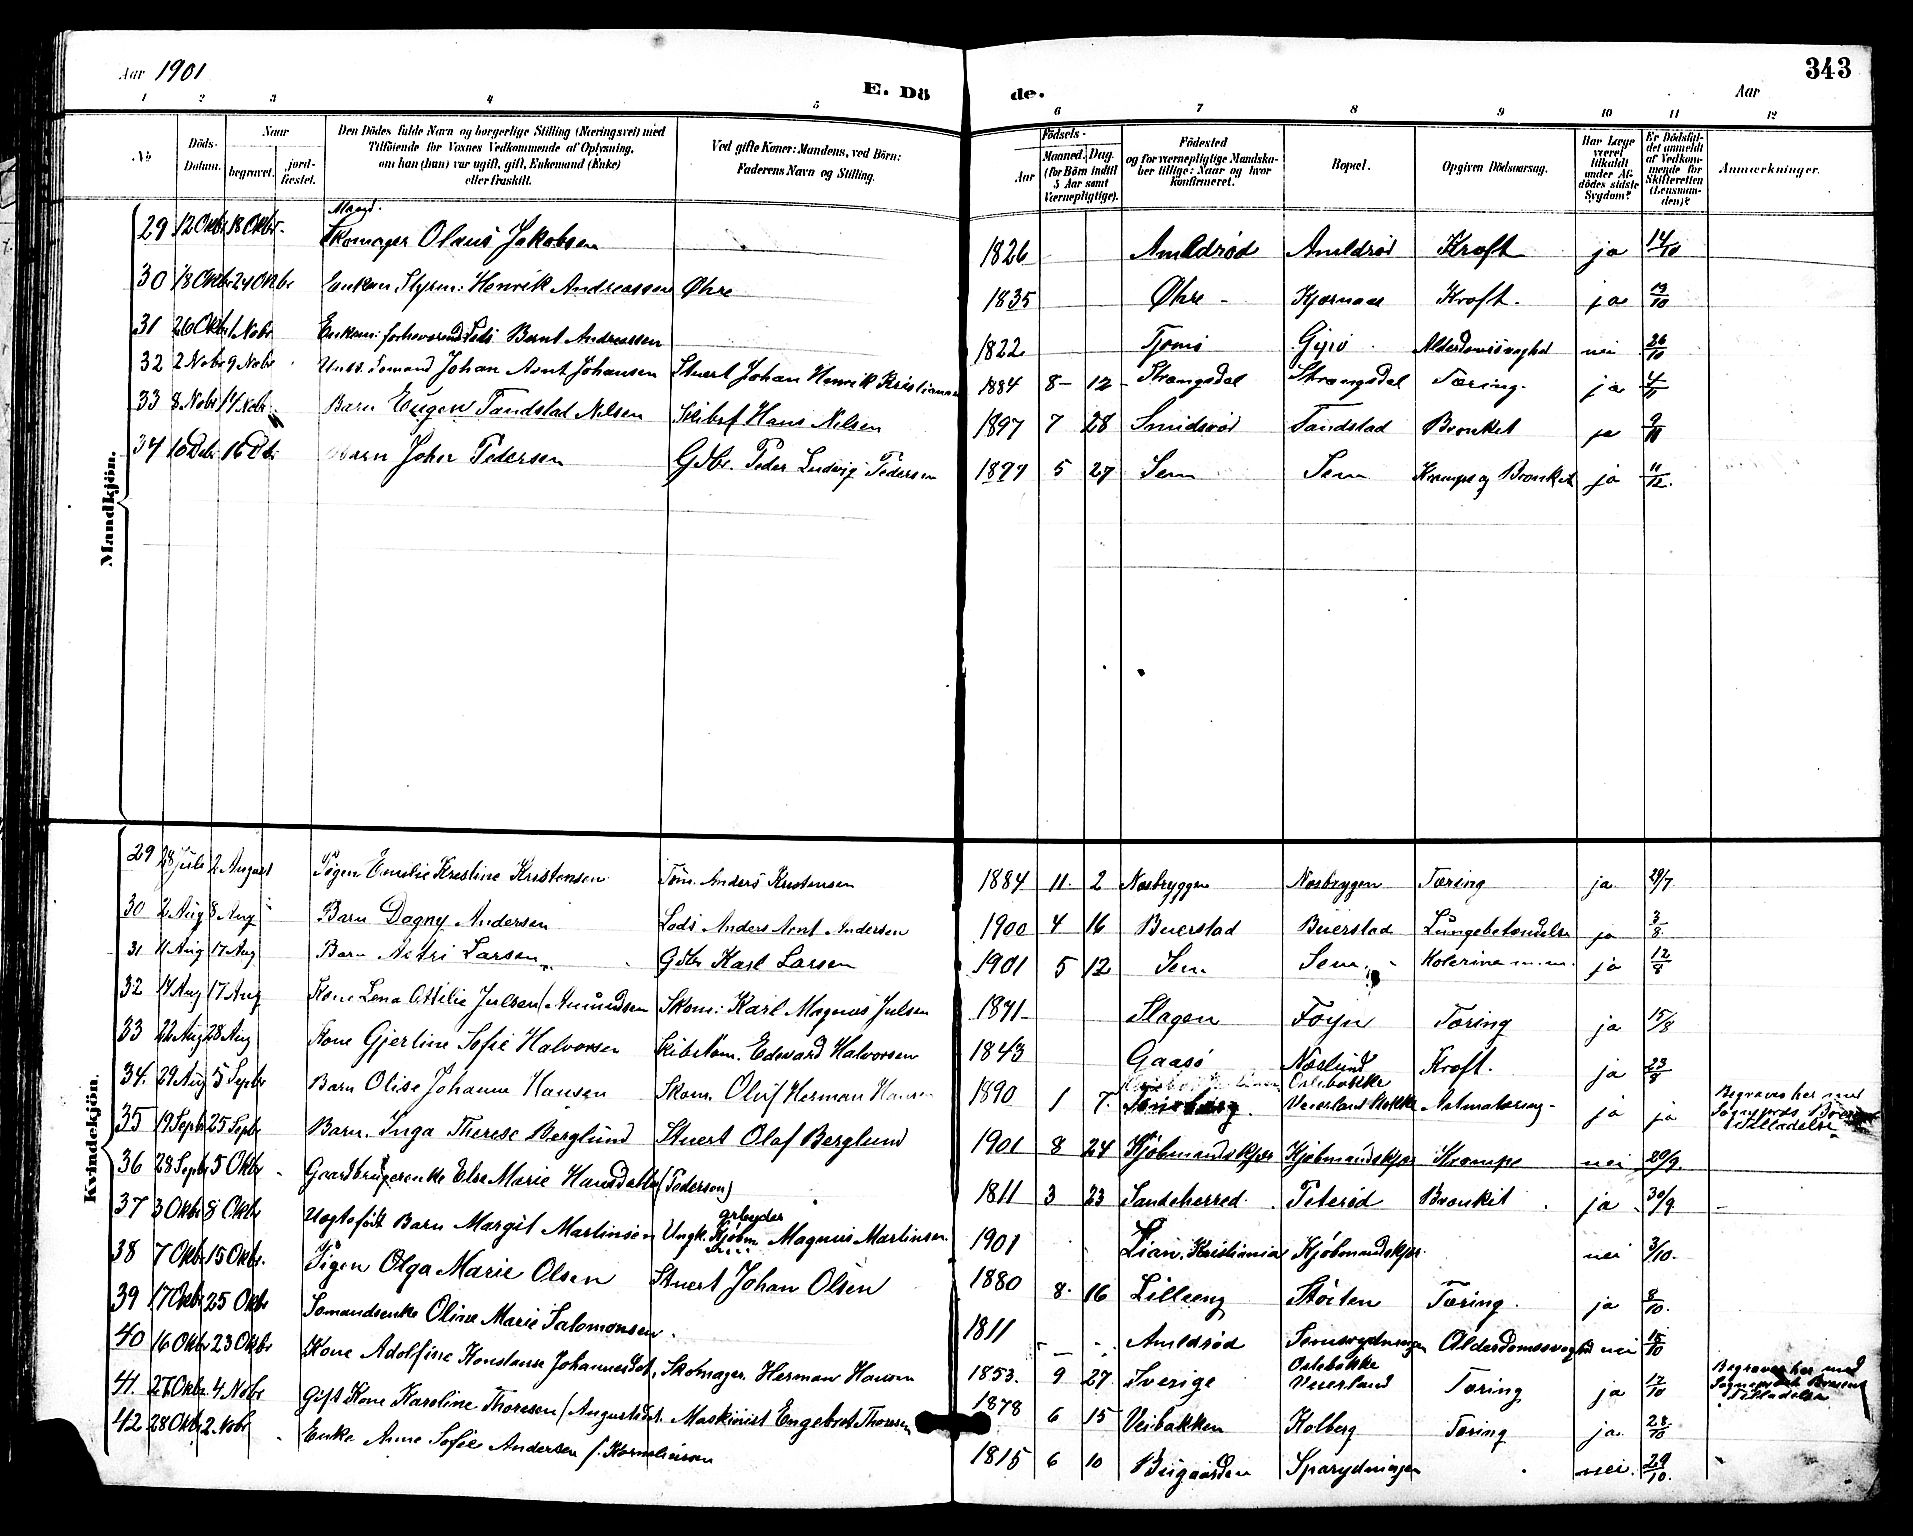 Aar 1901
E. Dö de.
Aar
343
1 2 3 4 5 6 7 8 9 10 11 12
No
Döds-Datum.
Naar
begravet.
jord-fæstet.
Den Dödes fulde Navn og borgerlige Stilling (Næringsvei) med
Tilföiende for Voxnes Vedkommende af Oplysning,
om han (hun) var ugift, gift, Enkemand (Enke)
eller fraskilt.
Ved gifte Koner: Mandens, ved Börn:
Faderens Navn og Stilling.
Födsels-
Aar
Maaned. Dag.
(for Börn indtil
5 Aar samt
Værnepligtige).
Födested
og for værnepligtige Mandska-
ber tillige: Naar og hvor
Konfirmeret.
Bopæl.
Opgiven Dödsaarsag.
Har Læge
været
tilkaldt
under Af-
dödes sidste
Sygdom?
Er Dödsfal-
det anmeldt
af Vedkom-
mende for
Skifteretten
(Lensman-
den)?
Anmærkninger.
Mandkjön.
29 12 Oktbr 18 Oktbr Skomager Olaus Jakobsen 1826 Amldrød Amldrød Kræft ja 14/10
30 18 Oktbr 24 Oktbr Enkem. Styrm: Henrik Andreassen Øhre 1835 Øhre Kjærnaae Kræft ja 19/10
31 26 Oktbr 1 Nobr Enkem: forhværend Lods Bernt Andreassen 1822 Tjømø Gipø Alderdomssvaghed nei 26/10
32 2 Nobr 9 Nobr Unks. Sømand Johan Arnt Johansen Stuert Johan Henrik Kristiansen 1884 8 12 Strængsdal Strængsdal Tæring ja 4/11
33 8 Nobr 14 Nobr Barn Eugen Tandstad Nilsen Skibsf Hans Nilsen 1897 7 28 Smidsrød Tandstad Bronkit ja 9/11
34 10 Debr 16 Debr Barn Johan Pedersen Gdbr. Peder Ludvig Pedersen 1897 5 27 Sem Sem Krampe og Bronkit ja 11/12
Kvindekjön.
29 28 Juli 2 August Pigen Emilie Kristine Kristensen Tøm. Anders Kristensen 1884 11 2 Næsbryggen Næsbryggen Tæring ja 29/7
30 2 Aug 8 Aug Barn Dagny Andersen Lods Anders Arnt Andersen 1900 4 16 Buerstad Buerstad Lungebetændelse ja 3/8
31 11 Aug 17 Aug Barn Astri Larsen Gdbr Karl Larsen 1901 5 12 Sem Sem Kolerine m.m. ja 12/8
32 14 Aug 17 Aug Kone Lena Otilie Julsen (Amundsen Skom: Karl Magnus Julsen 1871 Slagen Foyn Tæring ja 15/8
33 22 Aug 28 Aug Kone Gjertine Sofie Halvorsen Skibstøm. Edevard Halvorsen 1843 Gaasø Næslund Kræft ja 23/8
34 29 Aug 5 Septbr Barn Olise Johanne Hansen Skom. Oluf Herman Hansen 1890 1 7 Tønsberg Østebakke Veierland Stokke ja ja Begraves her med Sognepræs Tilladelse
35 19 Septbr 25 Septbr Barn Inga Therese Berglund Stuert Olaf Berglund 1901 8 24 Kjøbmandskjær Kjøbmandskjær Krampe nei 20/9
36 28 Septbr 5 Oktbr Gaardbrugerenke Else Marie Hansdatter (Pedersen) 1811 3 23 Sandeherred Peterød Bronkit ja 30/9
37 3 Oktbr 8 Oktbr Uægtefødt Barn Margit Martinsen Ungk. Arbeider Magnus Martinsen 1901 Lian, Kristiania Kjøbmandskjær nei 3/10
38 7 Oktbr 15 Oktbr Pigen Olga Marie Olsen Stuert Johan Olsen 1880 8 16 Lilleeng Støiten Tæring ja 8/10
39 17 Oktbr 25 Oktbr Sømandsenke Oline Marie Salomonsen 1811 Amldrød Alderdomssvaghed nei 18/10
40 16 Oktbr 23 Oktbr Kone Adolfine Konstanse Johannesdat. Skomager Herman Hansen 1853 9 27 Sverige Østebakke Veierland Tæring ja 17/10 Begraves her med Sognepræst Tilladelse
41 27 Oktbr 4 Nobr Gift Kone Karoline Thoresen (Augustsdat. Maskinist Engebret Thoresen 1878 6 15 Veibakken Kolberg Tæring ja 28/10
42 28 Oktbr 2 Nobr Enke Anne Sofie Andersen f. Korneliusen 1815 6 10 Bugaarden Sparydningen nei 29/10